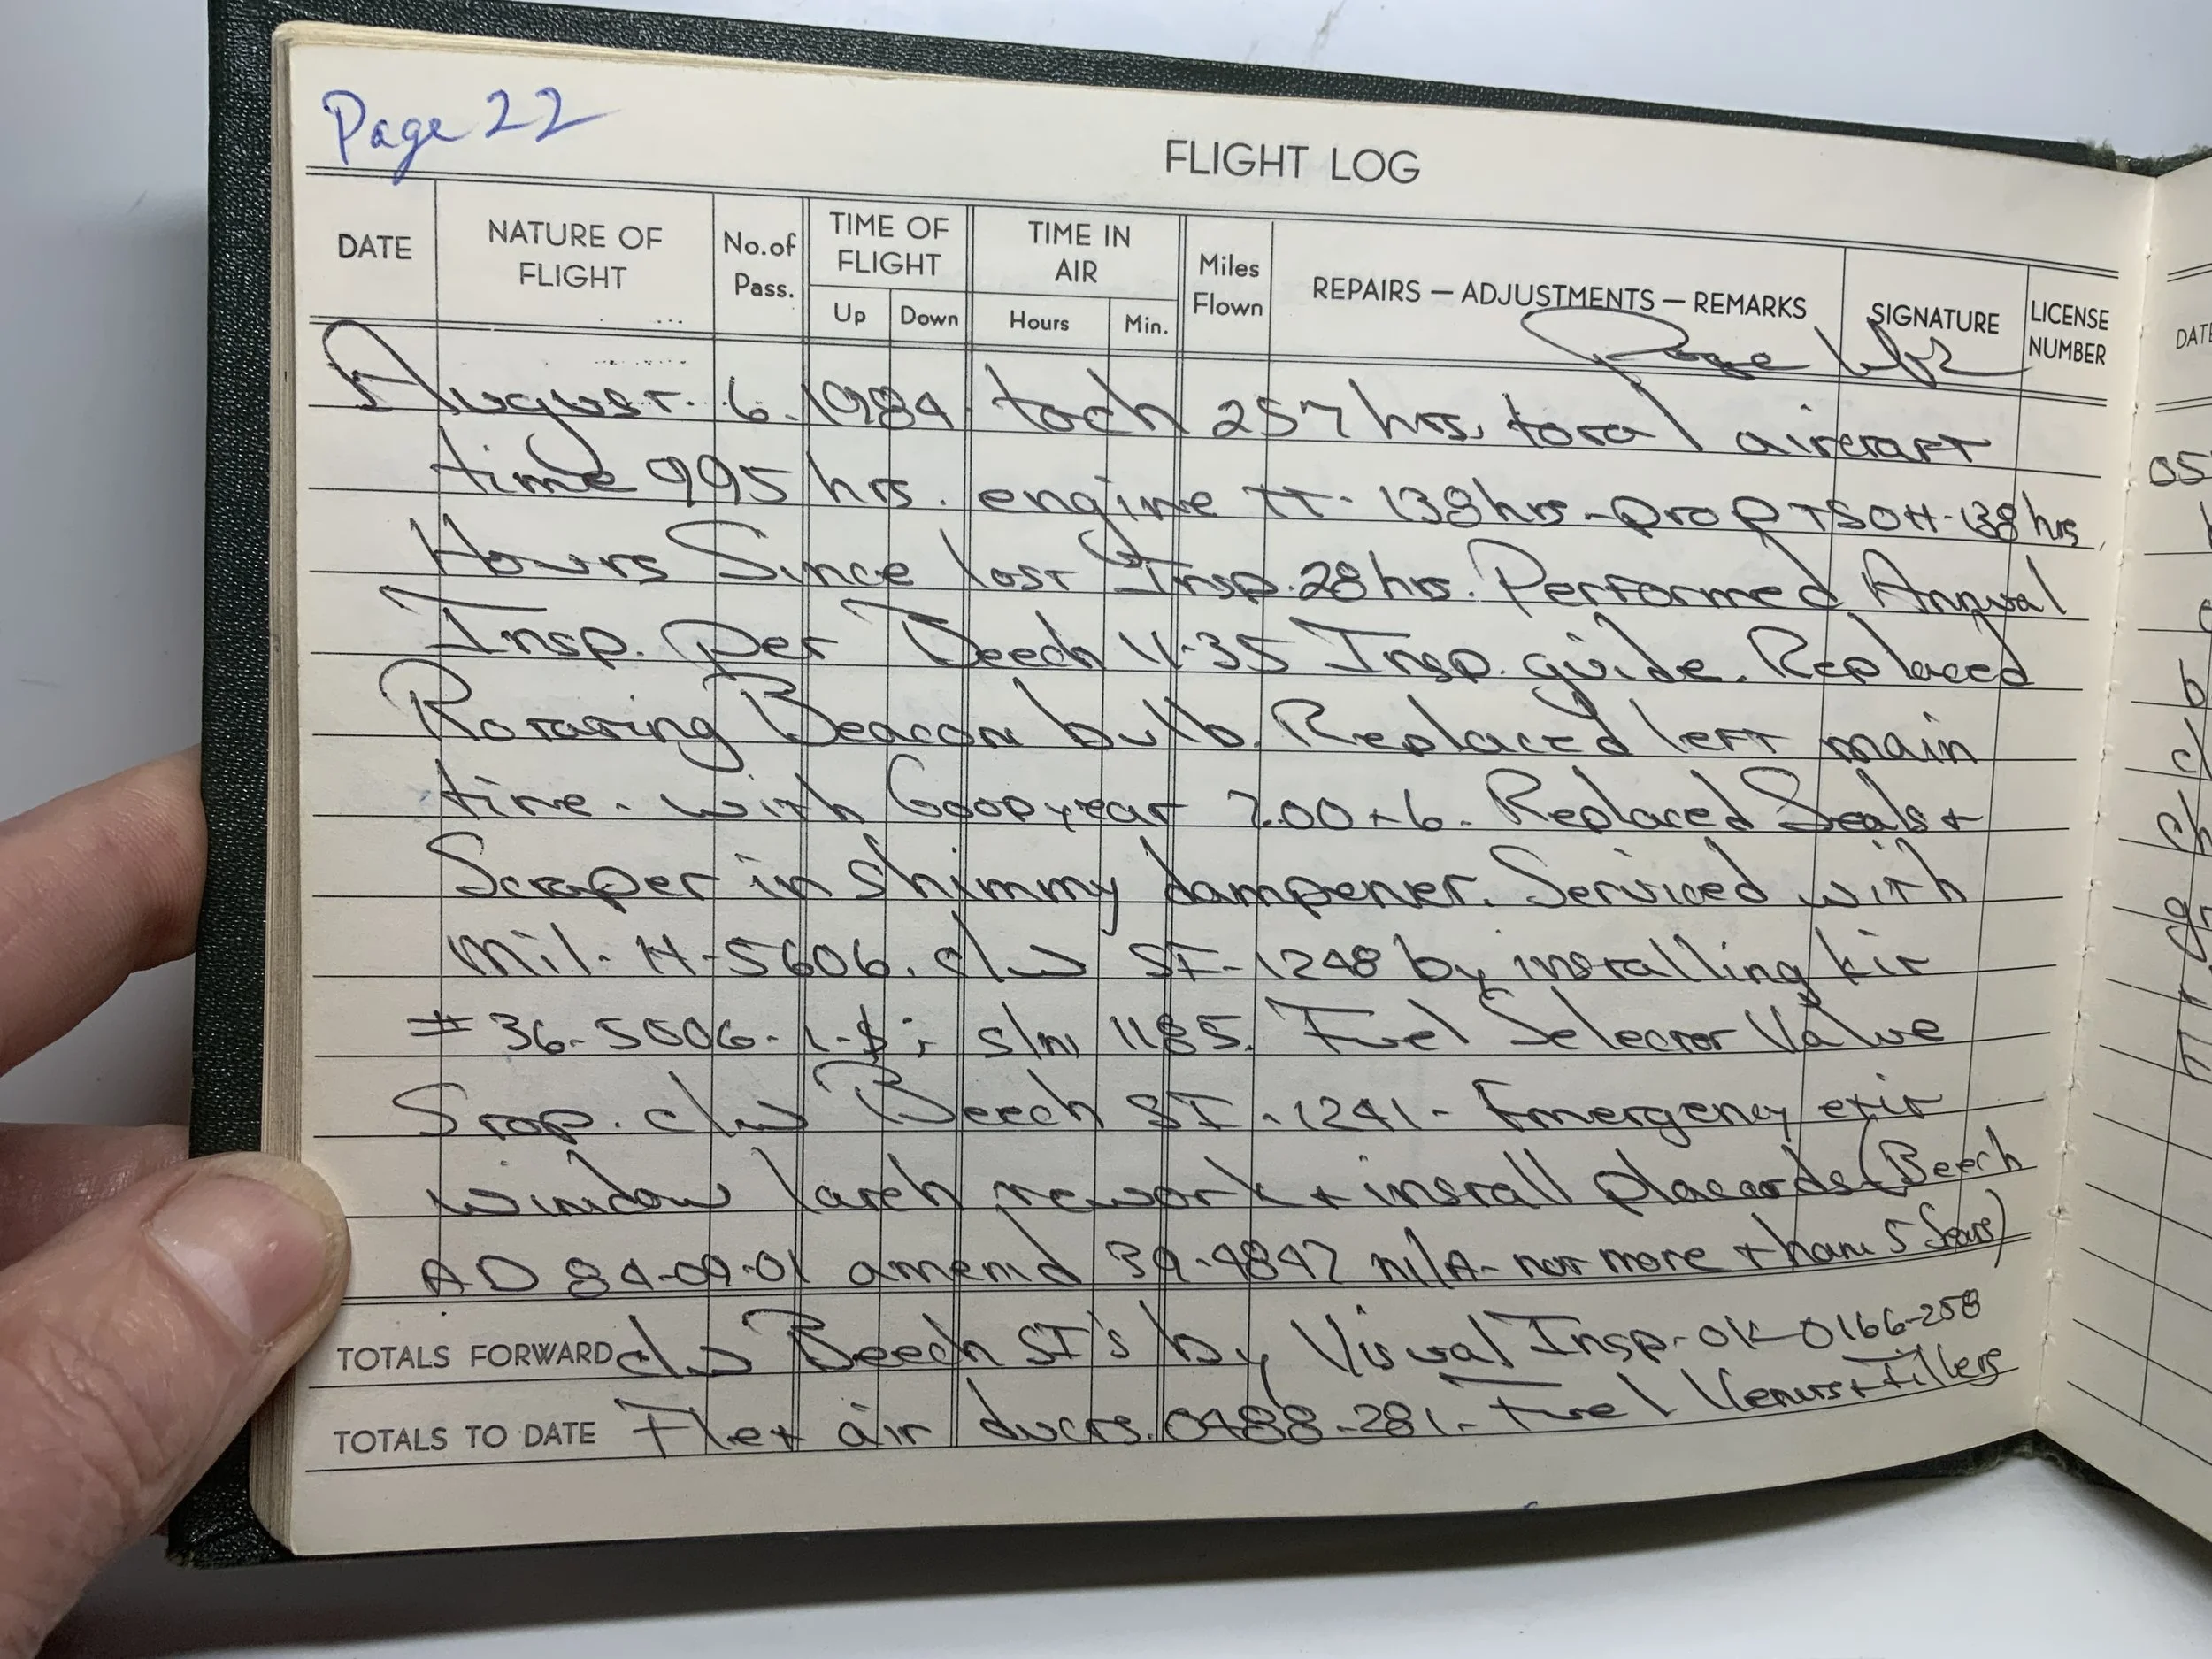 Page 22
FLIGHT LOG
DATE NATURE OF FLIGHT No. of Pass. TIME OF FLIGHT Up Down TIME IN AIR Hours Min. Miles Flown REPAIRS — ADJUSTMENTS — REMARKS SIGNATURE LICENSE NUMBER
Page 1 of 2
August 6, 1984 tach 257 hrs, total aircraft
time 995 hrs. engine tt- 138 hrs - prop TSOH - 138 hrs,
Hours Since last Insp. 28 hrs. Performed Annual
Insp. per Beech V-35 Insp. guide. Replaced
Rotating Beacon bulb. Replaced left main
tire - with Goodyear 7.00 x 6. Replaced Seals +
Scraper in Shimmy dampener. Serviced with
mil-H-5606. c/w SI-1248 by installing kit
# 36-5006-1-S; s/n 1185. Fuel Selector Valve
Stop. c/w Beech SI-1241- Emergency exit
window latch rework + install placards (Beech
AD 84-09-01 amend 39-4847 n/A- not more than 5 Seats)
TOTALS FORWARD c/w Beech SI's by Visual Insp - OK - 0166-258
TOTALS TO DATE Flex air ducts. 0488-281- Fuel Vents + fillers
DATE